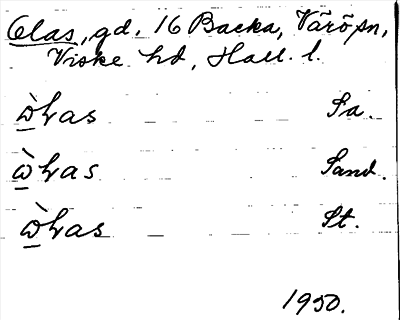 Olas, gd. 16 Backa, Värö sn,
Viske hd, Hall. l.
ὼ̱ɫas Sa.
ὼ̱ɫas Sand.
ὼ̱ɫas St.
1950.